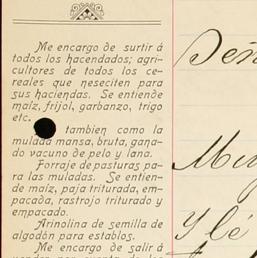 Me encargo de surtir á
todos los hacendados; agri-
cultores de todos los ce-
reales que neseciten para
sus haciendas. Se entiende
maíz, frijol, garbanzo, trigo
etc.
tambien como la
mulada mansa, bruta, gana-
do vacuno de pelo y lana.
Forraje de pasturas pa-
ra las muladas. Se entien-
de maíz, paja triturada, em-
pacada, rastrojo triturado y
empacado.
Arinolina de semilla de
algodón para establos.
Me encargo de salir á
Muy
y lé